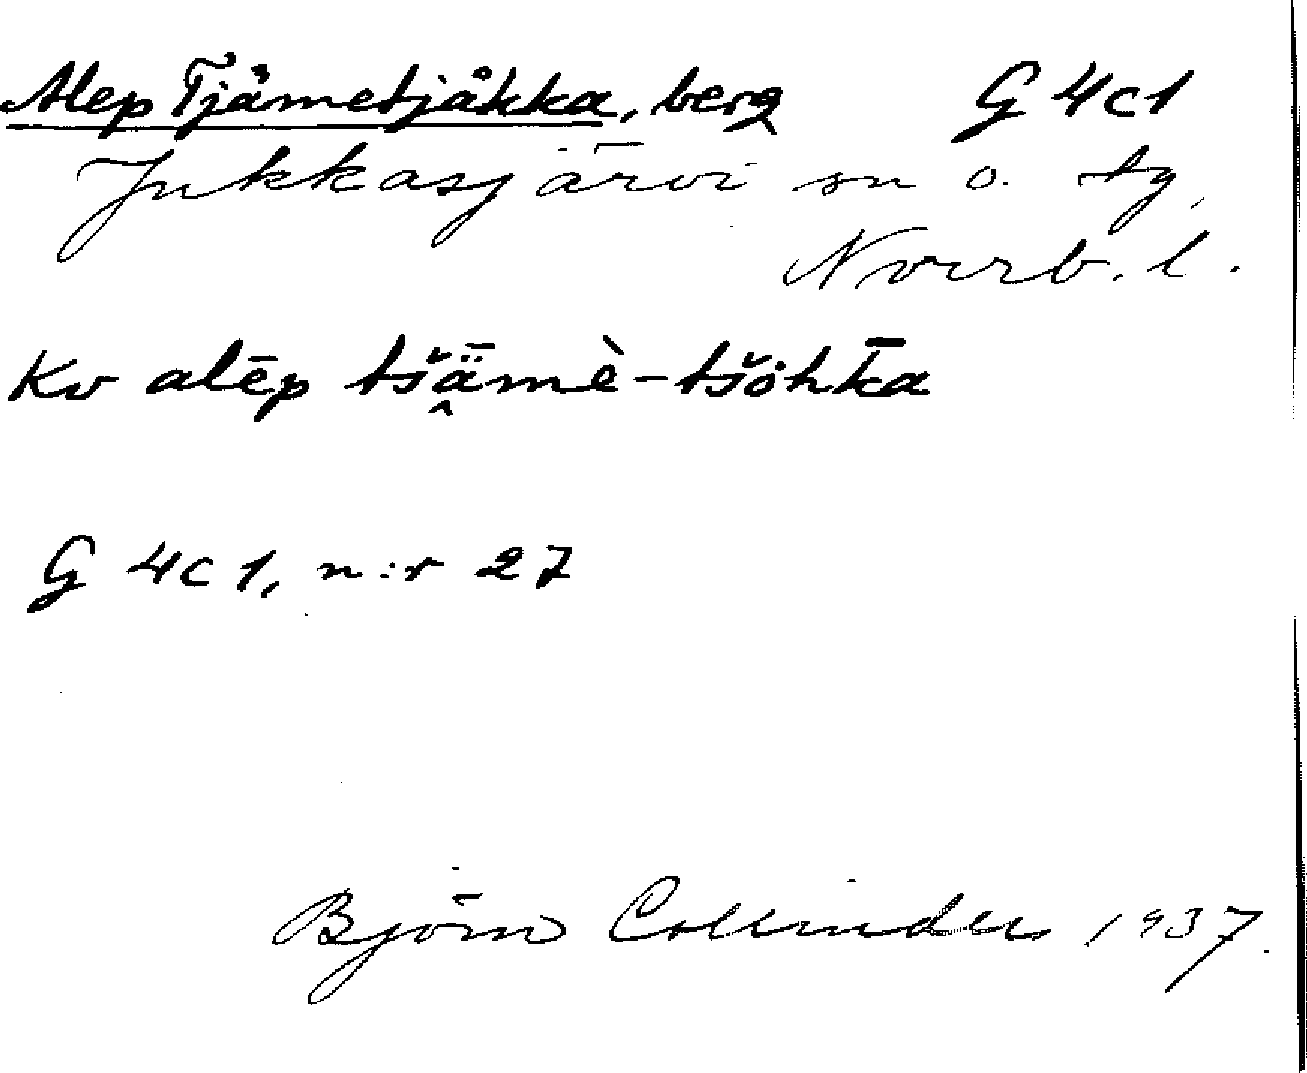 Alep Tjåmetjåkka, berg G 4c1
Jukkasjärvi sn o. tg,
Norrb. l.
Kv alēp tšǟ̬mè-tšöhk̄a
G 4c1, n:r 27
Björn Collinder 1937.